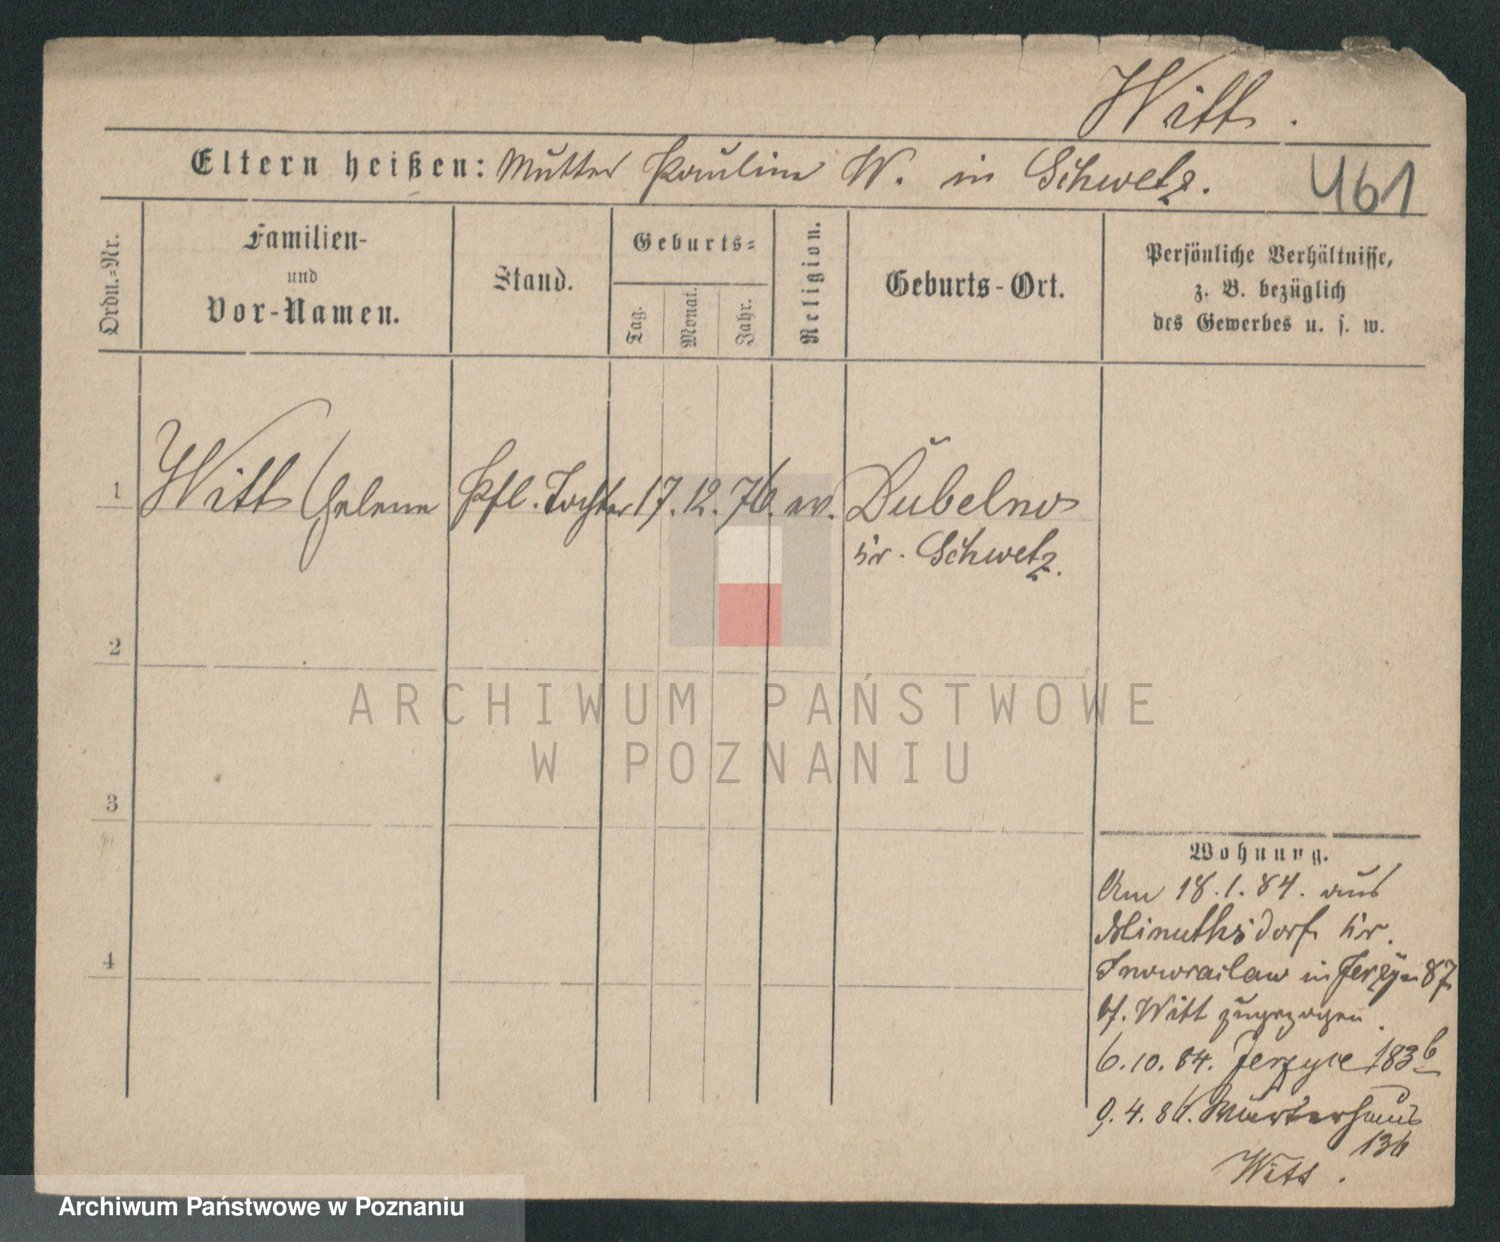 Witt.
Eltern heißen: Mutter Pauline W. in Schwetz.
461
Ordn.-Nr.
Familien-
und
Vor-Namen.
Stand.
Geburts-
Tag.
Monat.
Jahr.
Religion.
Geburts-Ort.
Persönliche Verhältnisse,
z. B. bezüglich
des Gewerbes u. s. w.
1 Witt Helene Pfl. Tochter 17. 12. 76. ev. Dubelno
Kr. Schwetz.
2
3
4
ARCHIWUM PAŃSTWOWE
W POZNANIU
Wohnung.
Am 18.1.84. aus
Kr.
Inowraclaw in Jerzyce 87
bf. Witt zugezogen.
6.10.84. Jerzyce 183b
9.4.86. Wärterhaus
136
Witt.
Archiwum Państwowe w Poznaniu